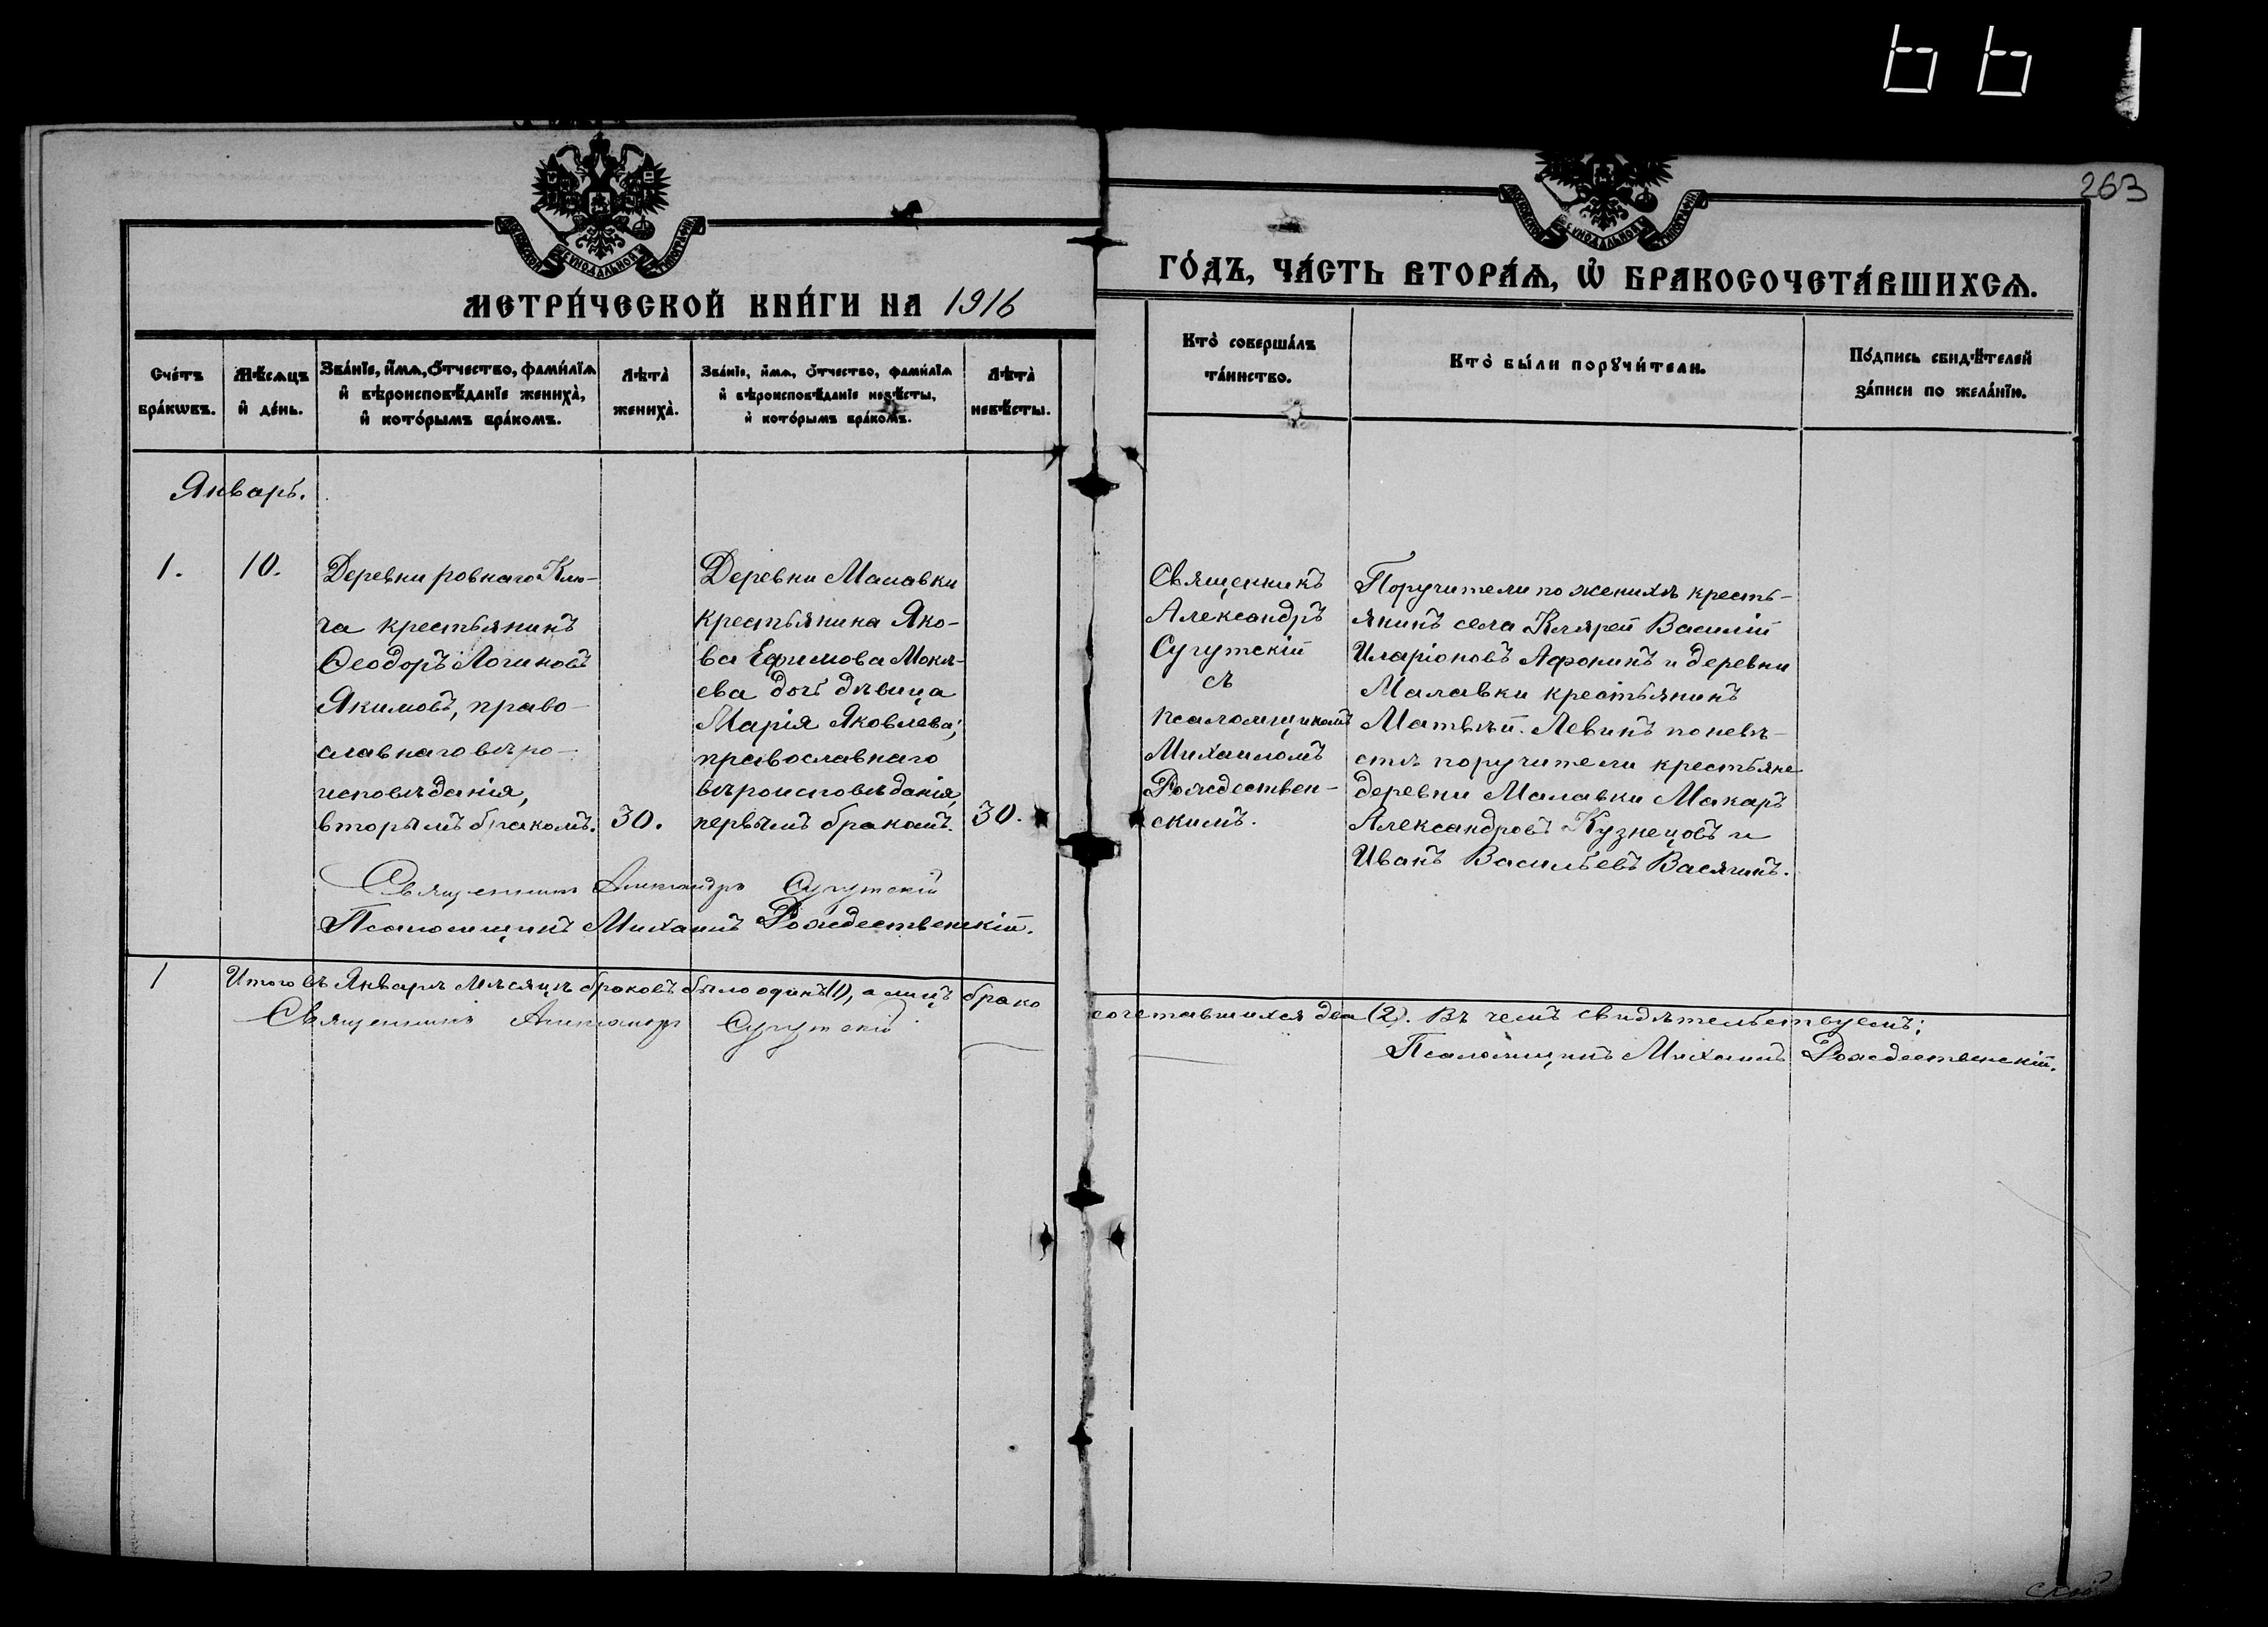 263
МЕТРИ́ЧЕСКОЙ КНИ́ГИ НА 1916
ГО́ДЪ, ЧА́СТЬ ВТОРА́Ѧ, Ѽ БРАКОСОЧЕТА́ВШИХСѦ.
Сче́тъ
бра́кѡвъ.
Мѣ́сѧцъ
и҆ де́нь.
Зва́нїе, и҆́мѧ, ѻ҆́тчество, фами́лїѧ
и҆ вѣроисповѣ́данїе жениха̀,
и҆ кото́рымъ бра́комъ.
Лѣта̀
жениха̀.
Зва́нїе, и҆́мѧ, ѻ҆́тчество, фами́лїѧ
и҆ вѣроисповѣ́данїе невѣ́сты,
и҆ кото́рымъ бра́комъ.
Лѣта̀
невѣ́сты.
Кто̀ соверша́лъ
та́инство.
Кто̀ бы́ли порꙋчи́тели.
По́дпись свидѣ́телей
за́писи по жела́нїю.
Январь.
1.
10.
Деревни Ровнаго Клю-
ча крестьянинъ
Ѳеодоръ Логиновъ
Якимовъ, право-
славнаго вѣро-
исповѣданія,
вторымъ бракомъ.
30.
Деревни Малавки
крестьянина Яко-
ва Ефимова Мокѣ-
ева дочь дѣвица
Марія Яковлева,
православнаго
вѣроисповѣданія,
первымъ бракомъ.
30.
Священникъ
Александръ
Сугутскій
съ
псаломщикомъ
Михаиломъ
Рождествен-
скимъ.
Поручители по женихѣ кресть-
янинъ села Клярей Василій
Иларіоновъ Афонинъ и деревни
Малавки крестьянинъ
Матвѣй Левинъ по невѣ-
стѣ поручители крестьяне
деревни Малавки Макаръ
Александровъ Кузнецовъ и
Иванъ Васильевъ Васягинъ.
Священникъ Александръ Сугутскій
Псаломщикъ Михаилъ Рождественскій.
1
Итого въ Январѣ мѣсяцѣ браковъ было одинъ (1), а лицъ брако
сочетавшихся два (2). Въ чемъ свидѣтельствуемъ:
Священникъ Александръ Сугутскій
Псаломщикъ Михаилъ Рождественскій.